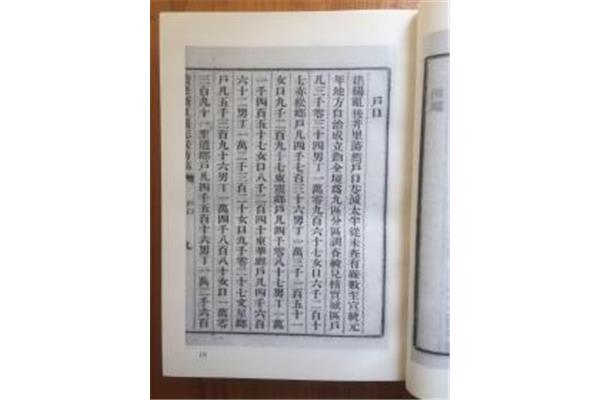 戶口
洪楊亂後井里蕩然戶口芟減太半從未查有確數至宣統元
年地方自治成立勘全境爲九區分區調查較見核實城區戶
凡三千零三十四男丁一萬零九百六十七女口六千二百十
七赤松鄉戶凡四千七百三十六男丁一萬三千一百五十一
女口九千二百九十七東震鄉戶凡四千零八十七男丁一萬
一千四百五十七女口八千二百四十東華鄉戶凡四千六百
六十二男丁一萬二千三百二十女口九千零二十七文星鄉
戶凡五千三百九十六男丁一萬四千八百八十女口一萬零
三百九十一里道鄉戶凡四千五百十六男丁一萬二千六百
戶口 九